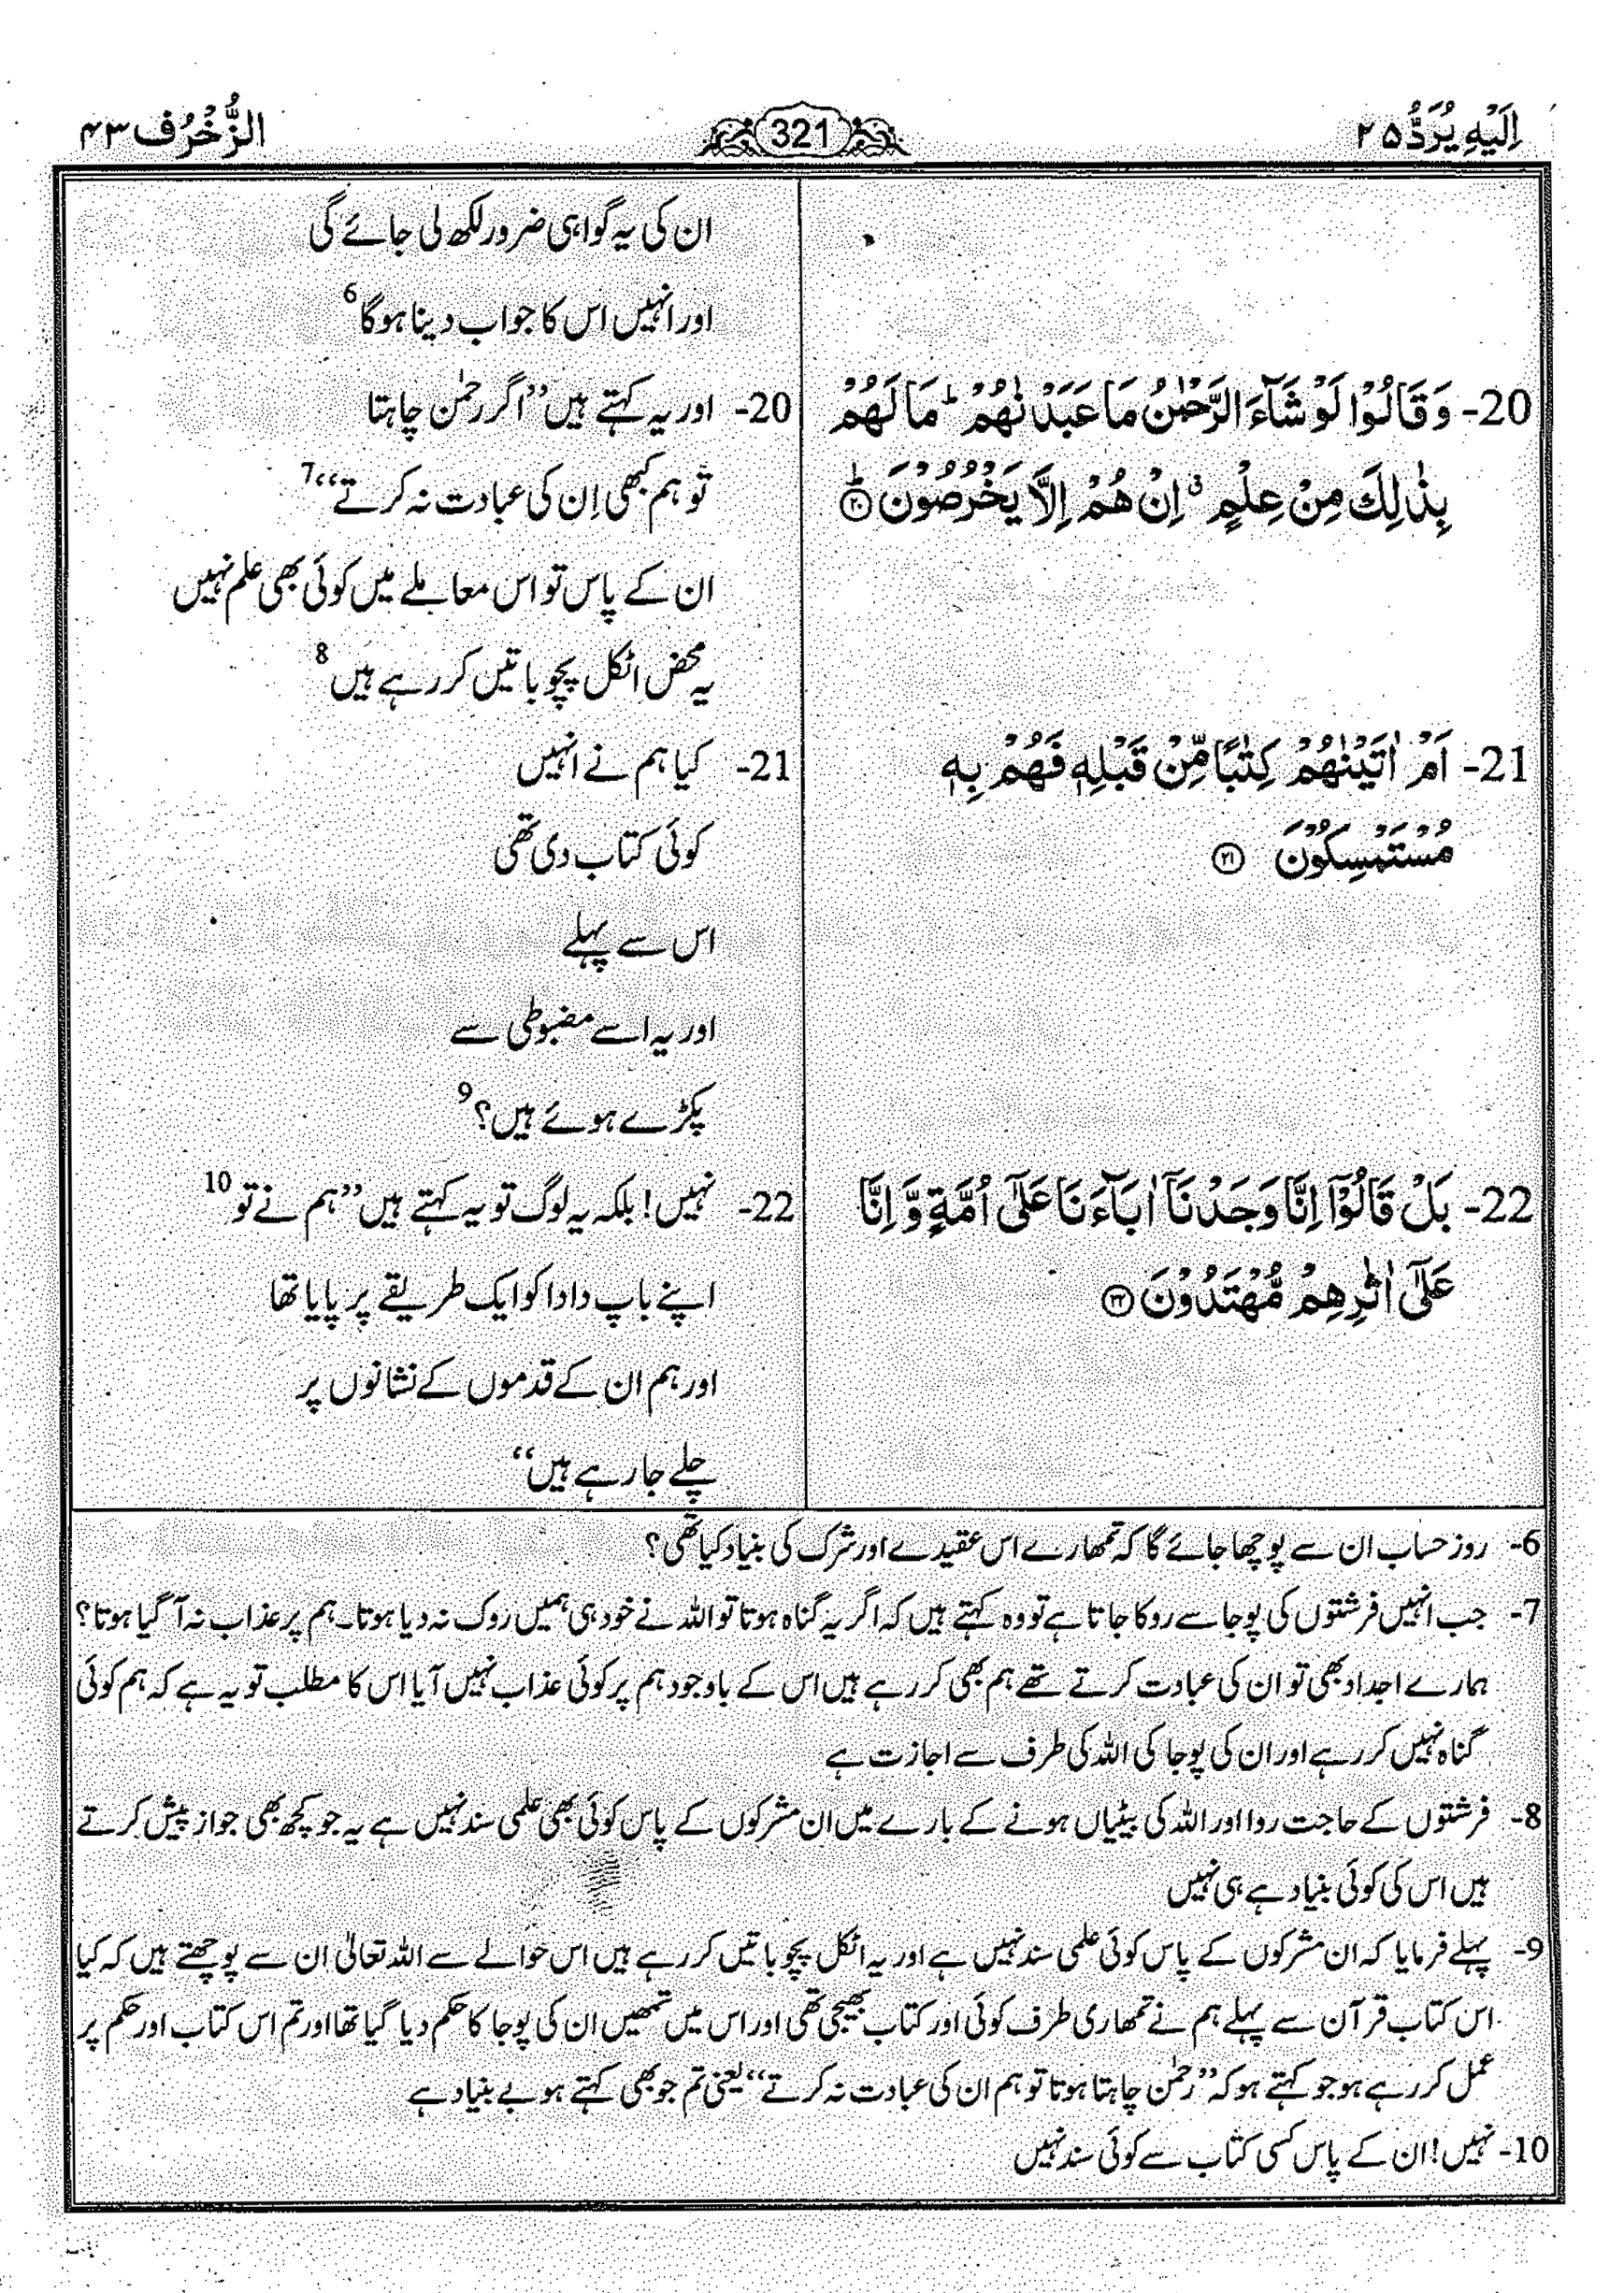 اِلَيْهِ يُرَدُّ ۲۵
321
الزُّخْرُف ۴۳
ان کی یہ گواہی ضرور لکھ لی جائے گی
اور انہیں اس کا جواب دینا ہوگا 6
20- وَقَالُوْا لَوْ شَآءَ الرَّحْمٰنُ مَا عَبَدْنٰهُمْ ؕ مَا لَهُمْ
بِذٰلِكَ مِنْ عِلْمٍ ۗ اِنْ هُمْ اِلَّا يَخْرُصُوْنَ ؕ ۲۰
20- اور یہ کہتے ہیں ’’اگر رحمٰن چاہتا
تو ہم کبھی اِن کی عبادت نہ کرتے‘‘ 7
ان کے پاس تو اس معاملے میں کوئی بھی علم نہیں
یہ محض اٹکل پچو باتیں کر رہے ہیں 8
21- اَمْ اٰتَيْنٰهُمْ كِتٰبًا مِّنْ قَبْلِهٖ فَهُمْ بِهٖ
مُسْتَمْسِكُوْنَ ۲۱
21- کیا ہم نے انہیں
کوئی کتاب دی تھی
اس سے پہلے
اور یہ اسے مضبوطی سے
پکڑے ہوئے ہیں؟ 9
22- بَلْ قَالُوْٓا اِنَّا وَجَدْنَآ اٰبَآءَنَا عَلٰٓى اُمَّةٍ وَّ اِنَّا
عَلٰٓى اٰثٰرِهِمْ مُّهْتَدُوْنَ ۲۲
22- نہیں! بلکہ یہ لوگ تو یہ کہتے ہیں ’’ہم نے تو 10
اپنے باپ دادا کو ایک طریقے پر پایا تھا
اور ہم ان کے قدموں کے نشانوں پر
چلے جا رہے ہیں‘‘
6- روز حساب ان سے پوچھا جائے گا کہ تمھارے اس عقیدے اور شرک کی بنیاد کیا تھی؟
7- جب انہیں فرشتوں کی پوجا سے روکا جاتا ہے تو وہ کہتے ہیں کہ اگر یہ گناہ ہوتا تو اللہ نے خود ہی ہمیں روک نہ دیا ہوتا۔ ہم پر عذاب نہ آ گیا ہوتا؟
ہمارے اجداد بھی تو ان کی عبادت کرتے تھے ہم بھی کر رہے ہیں اس کے باوجود ہم پر کوئی عذاب نہیں آیا اس کا مطلب تو یہ ہے کہ ہم کوئی
گناہ نہیں کر رہے اور ان کی پوجا کی اللہ کی طرف سے اجازت ہے
8- فرشتوں کے حاجت روا اور اللہ کی بیٹیاں ہونے کے بارے میں ان مشرکوں کے پاس کوئی بھی علمی سند نہیں ہے یہ جو کچھ بھی جواز پیش کرتے
ہیں اس کی کوئی بنیاد ہے ہی نہیں
9- پہلے فرمایا کہ ان مشرکوں کے پاس کوئی علمی سند نہیں ہے اور یہ اٹکل پچو باتیں کر رہے ہیں اس حوالے سے اللہ تعالیٰ ان سے پوچھتے ہیں کہ کیا
اس کتاب قرآن سے پہلے ہم نے تمھاری طرف کوئی اور کتاب بھیجی تھی اور اس میں تمھیں ان کی پوجا کا حکم دیا گیا تھا اور تم اس کتاب اور حکم پر
عمل کر رہے ہو جو کہتے ہو کہ ’’رحمٰن چاہتا ہوتا تو ہم ان کی عبادت نہ کرتے‘‘ یعنی تم جو بھی کہتے ہو بے بنیاد ہے
10- نہیں! ان کے پاس کسی کتاب سے کوئی سند نہیں